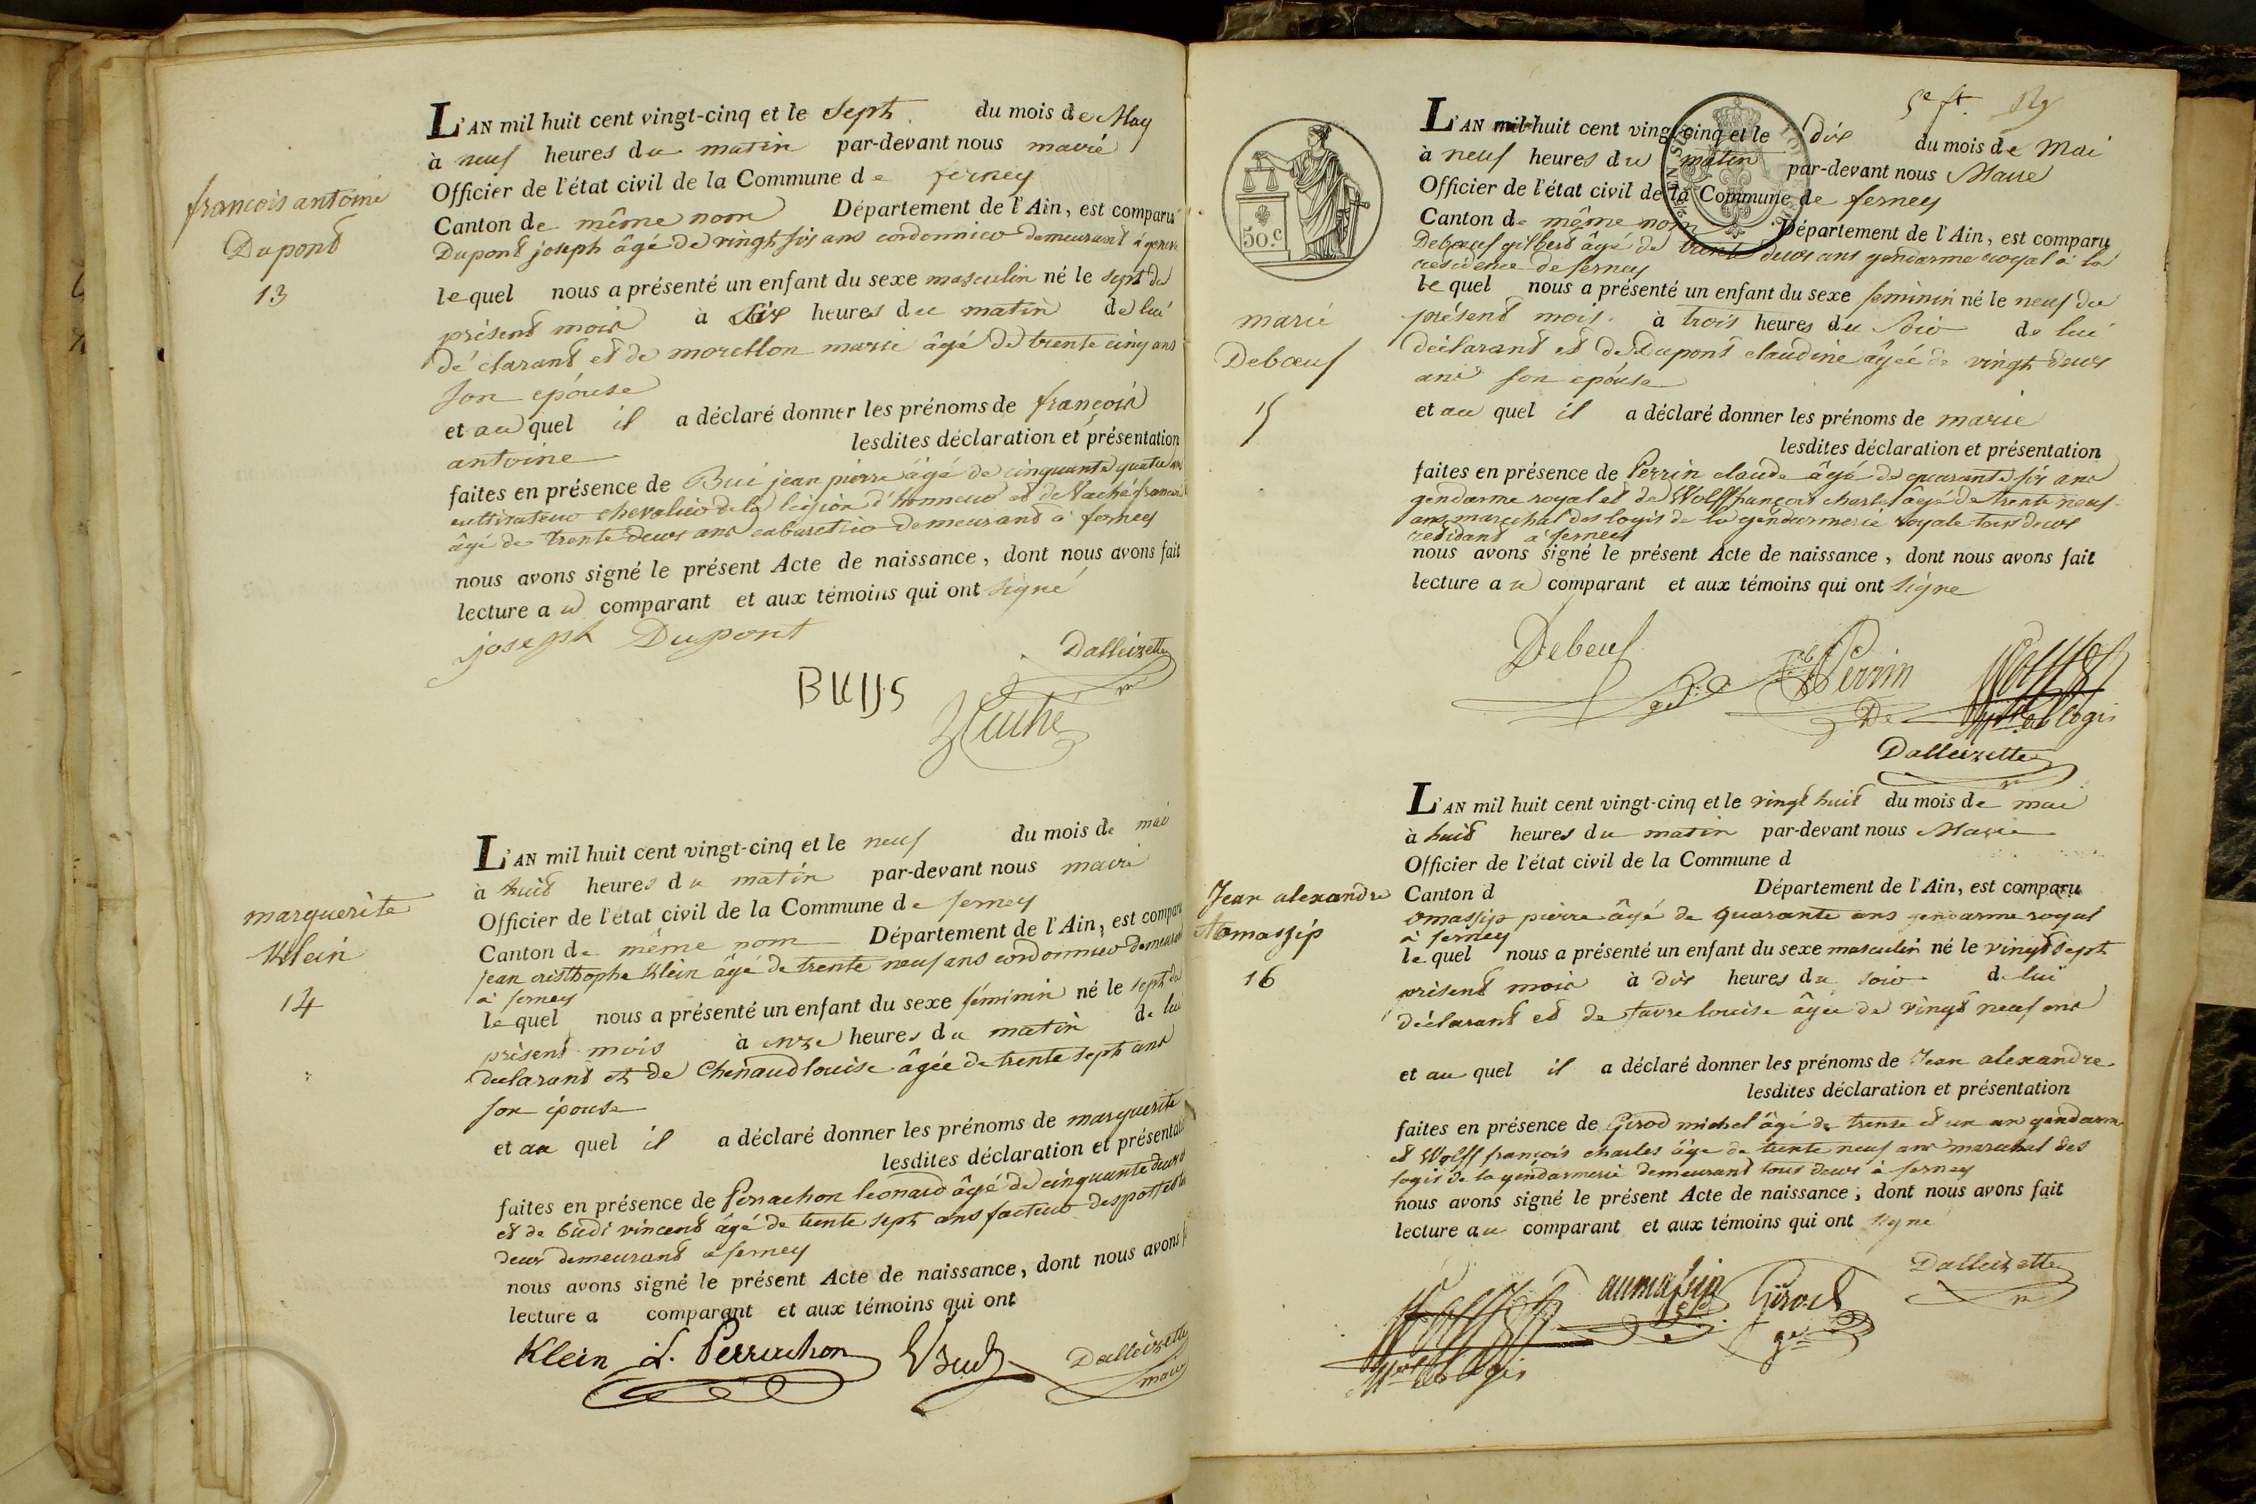 francois antoine
Dupont
13
L'AN mil huit cent vingt-cinq et le sept du mois de May
à neuf heures du matin par-devant nous maire
Officier de l'état civil de la Commune de ferney
Canton de même nom Département de l'Ain, est comparu
Dupont joseph âgé de vingt six ans cordonnier demeurant à
lequel nous a présenté un enfant du sexe masculin né le sept du
présent mois à Six heures du matin de lui
déclarant et de morellon marie âgé de trente cinq ans
son epouse
et au quel il a déclaré donner les prénoms de françois
antoine lesdites déclaration et présentation
faites en présence de Bui jean pierre âgé de cinquante quatre ans
cultivateur chevalier de la légion d'honneur et de Vaché francoi
âgé de trente deux ans cabaretier demeurant à ferney
nous avons signé le présent Acte de naissance, dont nous avons fait
lecture au comparant et aux témoins qui ont signé
joseph Dupont
Dalleizette
BUIJS
Vache
marguerite
Klein
14
L'AN mil huit cent vingt-cinq et le neuf du mois de mai
à huit heures du matin par-devant nous maire
Officier de l'état civil de la Commune de ferney
Canton de même nom Département de l'Ain, est comparu
jean cristhophe Klein âgé de trente neuf ans cordonnier demeurant
à ferney
lequel nous a présenté un enfant du sexe féminin né le sept du
présent mois à onze heures du matin de lui
declarant et de Chenaud louise âgée de trente sept ans
son épouse
et au quel il a déclaré donner les prénoms de marguerite
lesdites déclaration et présentati
faites en présence de Perrachon leonard âgé de cinquante deux
et de Budi vincent âgé de trente sept ans facteur des postes
deux demeurant a ferney
nous avons signé le présent Acte de naissance, dont nous avons f
lecture a comparant et aux témoins qui ont
Klein L. Perrachon VBudi Dalleizette
maire
50.c
marie
Debœuf
15
L'AN mil huit cent vingt-cinq et le dix du mois de Mai
à neuf heures du matin par-devant nous Maire
Officier de l'état civil de la Commune de ferney
Canton de même nom Département de l'Ain, est comparu
Debœuf gilbert âgé de trente deux ans gendarme royal à la
residence de ferney
lequel nous a présenté un enfant du sexe feminin né le neuf du
présent mois. à trois heures du soir de lui
déclarant et de Dupont claudine âgée de vingt deux
ans son epouse
et au quel il a déclaré donner les prénoms de marie
lesdites déclaration et présentation
faites en présence de Perrin claude âgé de quarante six ans
gendarme royal et de Wolff françois charles âgé de trente neuf
ans marechal des logis de la gendarmerie royale tous deux
residant a ferney
nous avons signé le présent Acte de naissance, dont nous avons fait
lecture au comparant et aux témoins qui ont signe
Debeuf Perrin Wolff
Dalleizette
Jean alexandre
Aomassip
16
L'AN mil huit cent vingt-cinq et le vingt huit du mois de mai
à huit heures du matin par-devant nous Maire
Officier de l'état civil de la Commune d
Canton d Département de l'Ain, est comparu
omassip pierre âgé de quarante ans gendarme royal
à ferney
lequel nous a présenté un enfant du sexe masculin né le vingt sept
présent mois à dix heures du soir de lui
déclarant et de favre louise âgée de vingt neuf ans
et au quel il a déclaré donner les prénoms de Jean alexandre
lesdites déclaration et présentation
faites en présence de Girod michel âgé de trente et un an gendarm
et Wolff françois charles âge de trente neuf ans marechal des
logis de la gendarmerie demeurant tous deux à ferney
nous avons signé le présent Acte de naissance, dont nous avons fait
lecture au comparant et aux témoins qui ont signé
Dalleizette
Wolff aumassip Girod